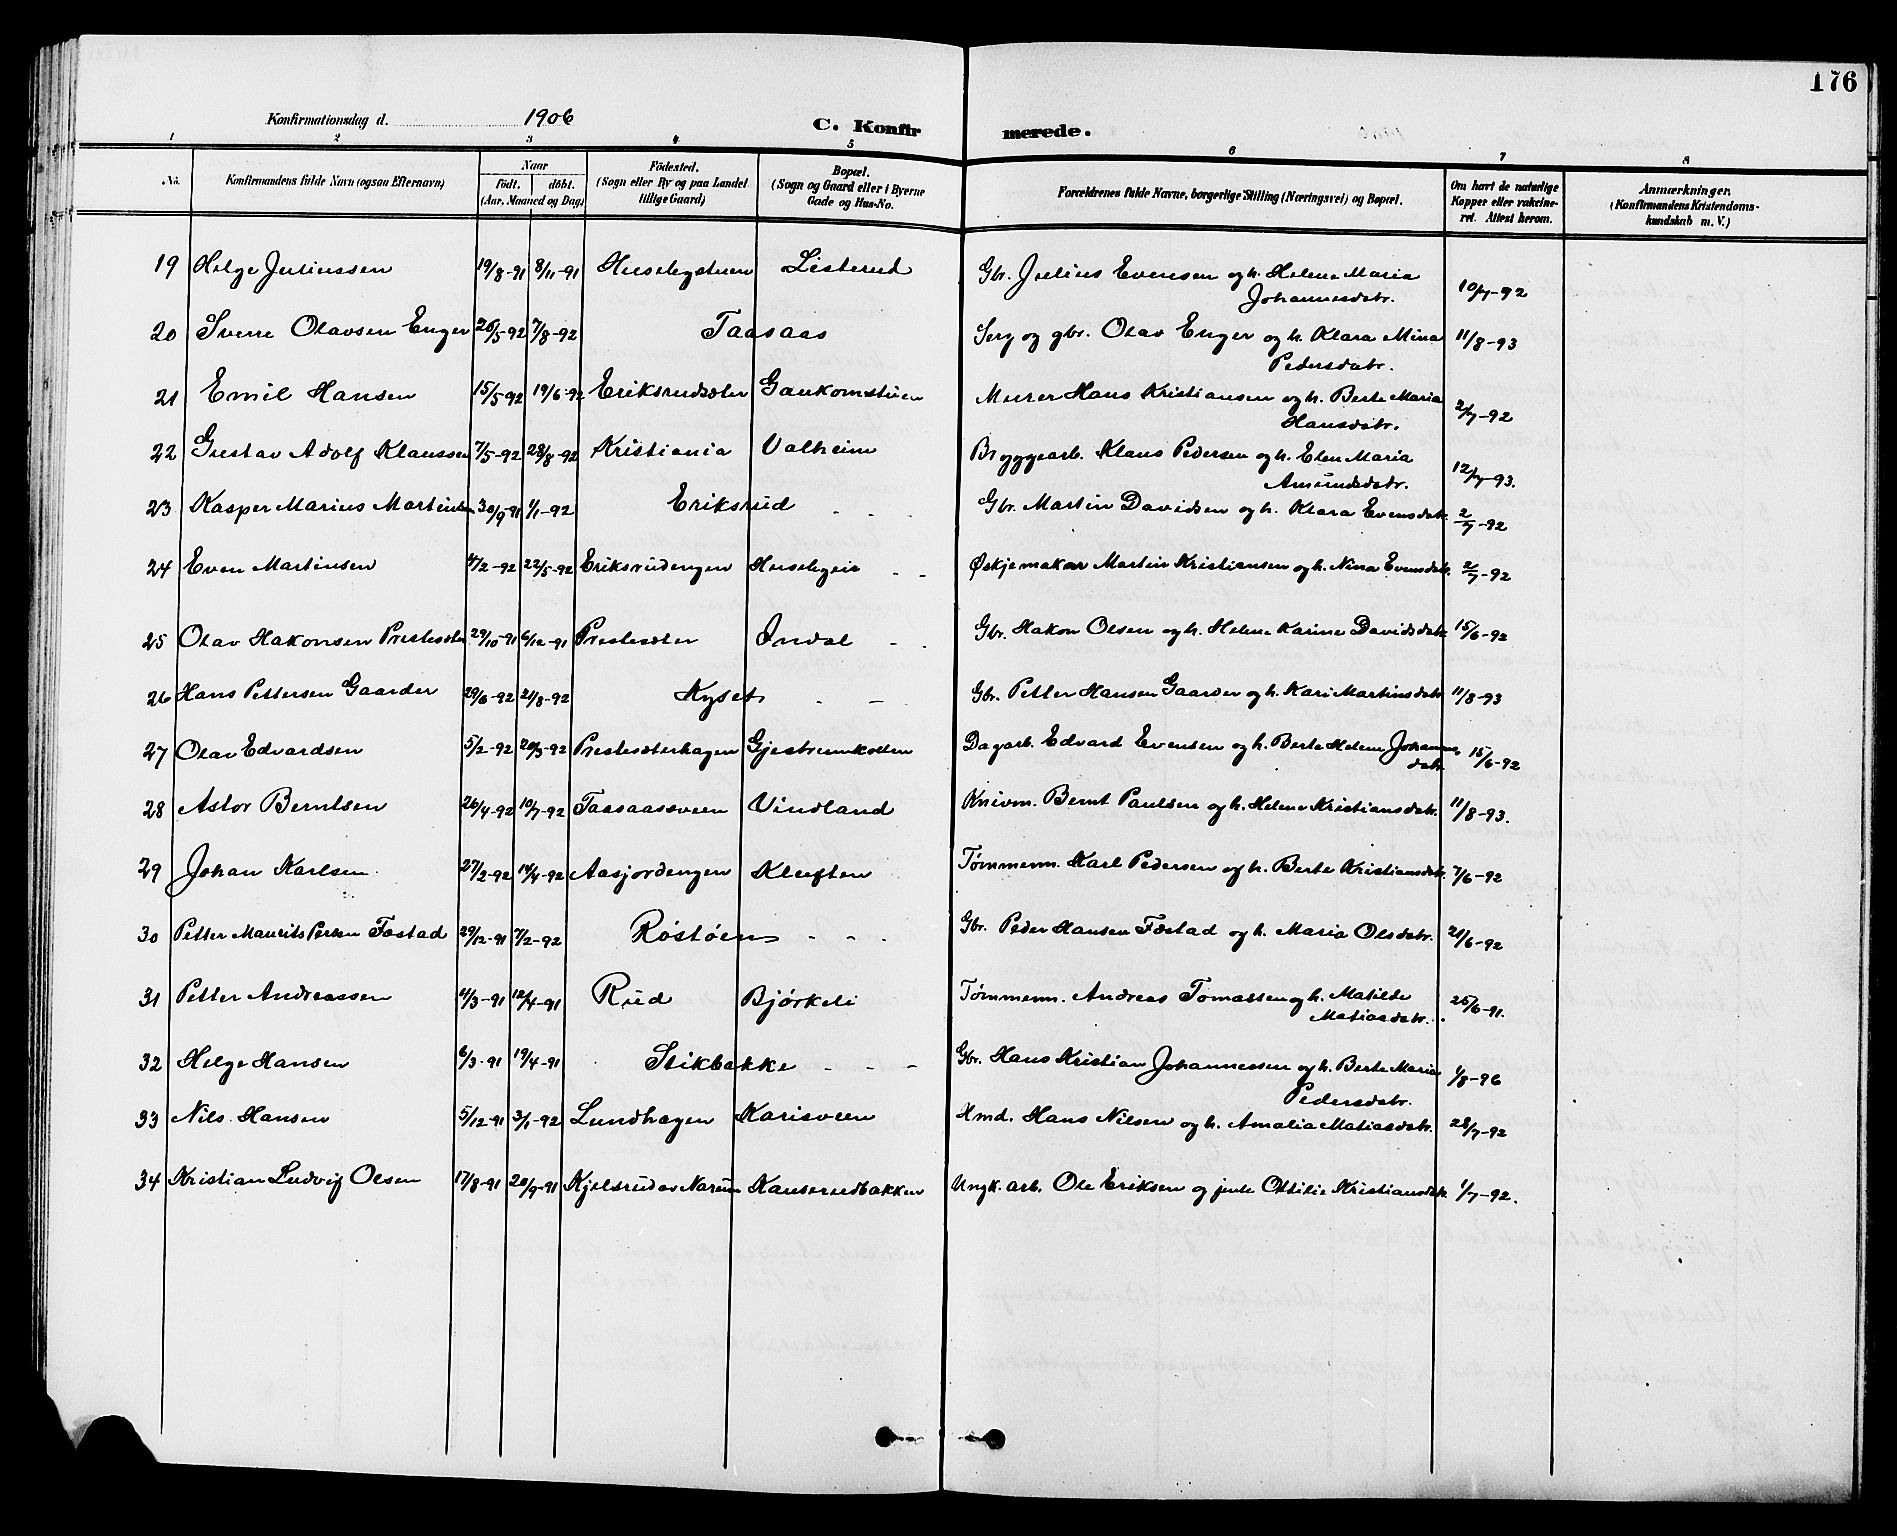 176
Konfirmationsdag d. 1906 C. Konfirmerede.
1 2 3 4 5 6 7 8
No. Konfirmandens fulde Navn (ogsaa Efternavn) Naar födt. döbt. (Aar, Maaned og Dag) Födested. (Sogn eller By og paa Landet tillige Gaard) Bopæl. (Sogn og Gaard eller i Byerne Gade og Hus-No. Forældrenes fulde Navne, borgerlige Stilling (Næringsvei) og Bopæl. Om havt de naturlige Kopper eller vakcineret. Attest herom. Anmærkninger. (Konfirmandens Kristendomskundskab m. V.)
19 Helge Juliussen 19/8-91 8/11-91 Huusebystuen Listerud Gbr. Julius Evensen og h. Helene Maria Johannesdatr. 10/7-92
20 Sverre Olavsen Enger 26/5-92 7/8-92 Taasaas Serg og gbr. Olav Enger og h. Klara Mina Pedersdatr. 11/8-93
21 Emil Hansen 15/5-92 19/6-92 Eriksrudsæter Gaukomstuen Murer Hans Kristiansen og h. Berte Maria Hansdatr. 2/7-92
22 Gustav Adolf Klaussen 7/5-92 28/8-92 Kristiania Valheim Bryggearb. Klaus Pedersen og h. Elen Maria Amundsdatr. 12/7-93.
23 Kasper Marius Martinsen 30/9-91 1/1-92 Eriksrud - - - Gbr. Martin Davidsen og h. Klara Evensdatr. 2/7-92
24 Even Martinsen 4/2-92 22/5-92 Eriksrudengen - - Øskjemakar Martin Kristiansen og h. Nina Evensdatr. 2/7-92
25 Olav Hakonsen Prestesæter 29/10-91 6/12-91 Prestesæter Indal - - Gbr. Hakon Olsen og h. Helene Karine Davidsdatr. 15/6-92
26 Hans Pettersen Gaarder 29/6-92 21/8-92 Kyset - - Gbr. Petter Hansen Gaarder og h. Kari Martinsdatr. 11/8-93
27 Olav Edvardsen 5/2-92 20/3-92 Prestesæterhagen Gjestrumkollen Dagarb. Edvard Evensen og h. Berte Helene Johannesdatr. 15/6-92
28 Astor Berntsen 26/4-92 10/7-92 Taasaasveen Vindland Knivm. Bernt Paulsen og h. Helene Kristiansdatr. 11/8-93.
29 Johan Karlsen 27/2-92 14/4-92 Aasjordengen Kluften Tømmerm. Karl Pedersen og h. Berte Kristiansdatr. 7/6-92
30 Petter Maurits Persen Fæstad 29/12-91 7/2-92 Røstøen - - - Gbr. Peder Hansen Fæstad og h. Maria Olsdatr. 21/6-92
31 Petter Andreassen 4/3-91 12/4-91 Rud Bjørkeli Tømmerm. Andreas Tomassen og h. Matilde Matiasdatr. 25/6-91.
32 Helge Hansen 6/3-91 19/4-91 Stikbakke - - - Gbr. Hans Kristian Johannessen og h. Berte Maria Pedersdatr. 1/8-96
33 Nils Hansen 5/12-91 3/1-92 Lundhagen Karisveen Hmd. Hans Nilsen og h. Amalia Matiasdatr. 28/7-92
34 Kristian Ludvig Olsen 17/8-91 20/9-91 Kjelsrud av Narum Kauserudbakken Ungk. arb. Ole Eriksen og jente Ottilie Kristiansdatr. 1/7-92.